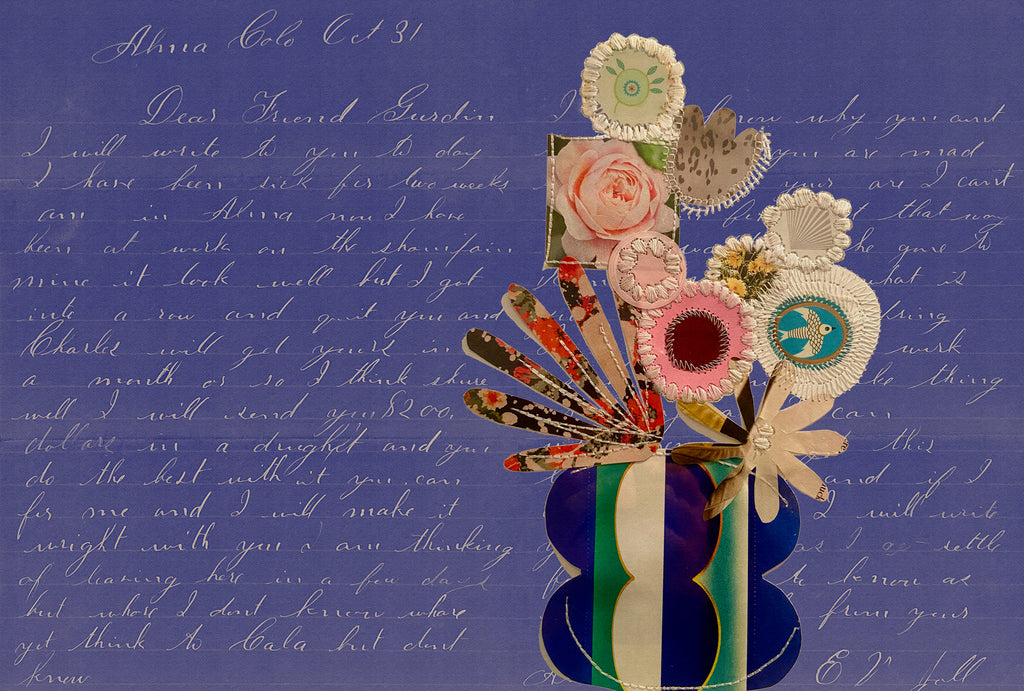 Alma Colo Oct 31
Dear Friend Gurdin
I will write to you to day
I have been sick for two weeks
am in Alma now I have
been at work on the
mine it look well but I got
into a row and quit you and
Charles will get yours in
a month or so I think shure
well I will send you $200,
dollars in a draught and you
do the best with it you can
for me and I will make it
wright with you I am thinking
of leaving here in a few days
but whare I dont know whare
yet think to Cala but dont
know
I know why you ant
you are mad
your are I cant
that way
he gone to
what is
work
thing
can
this
and if I
I will write
as I settle
to know as
from your
E V Hall